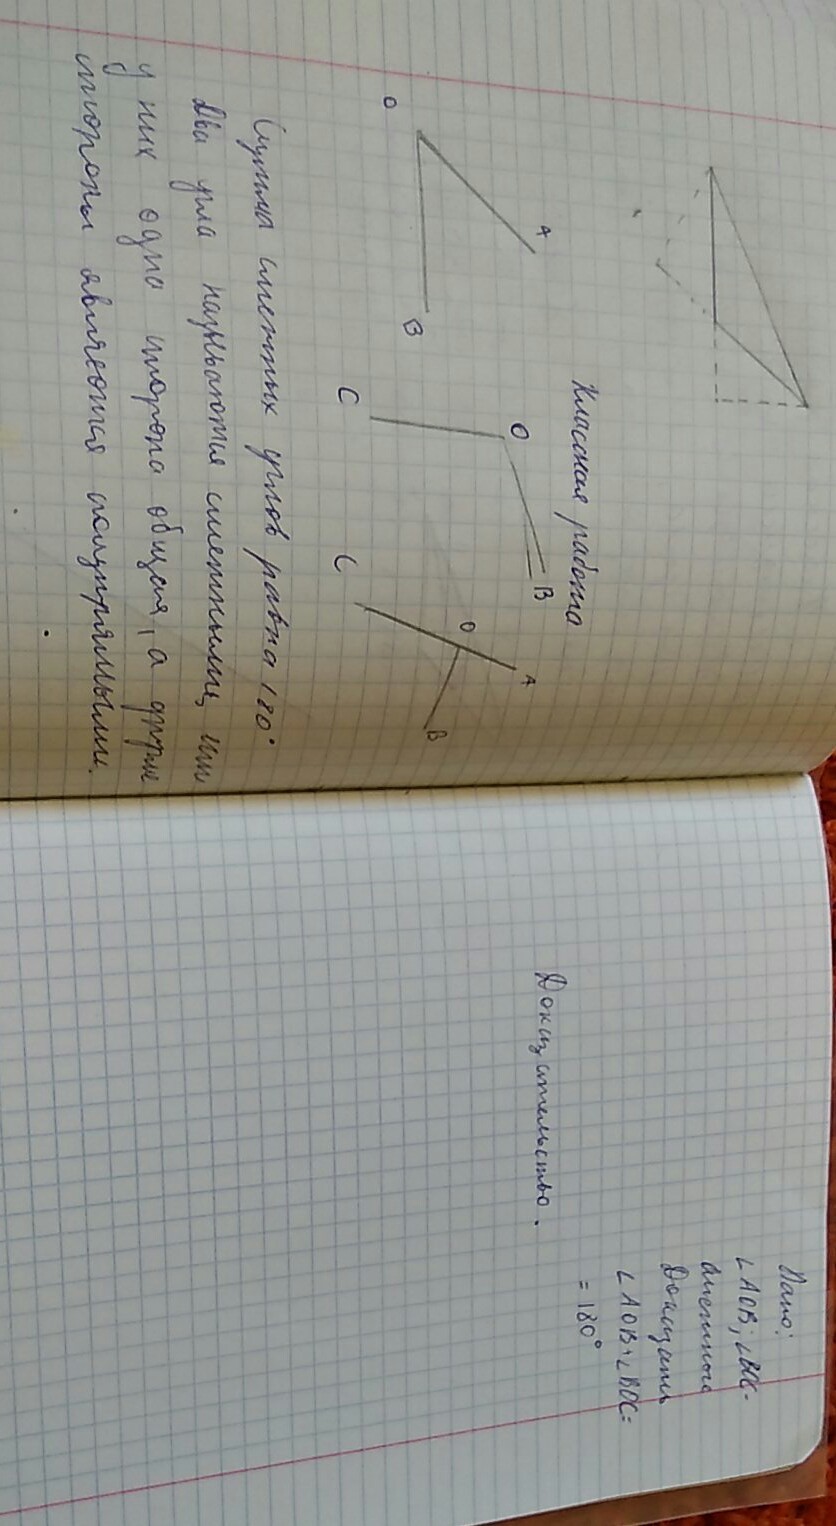 Классная работа
A
O
B
O
B
C
A
O
B
C
Сумма смежных углов равна 180°
Два угла называются смежными, если
у них одна сторона общая, а другие
стороны являются полупрямыми.
Дано:
∠AOB; ∠BOC-
смежные
Доказать
∠AOB+∠BOC=
= 180°
Доказательство.